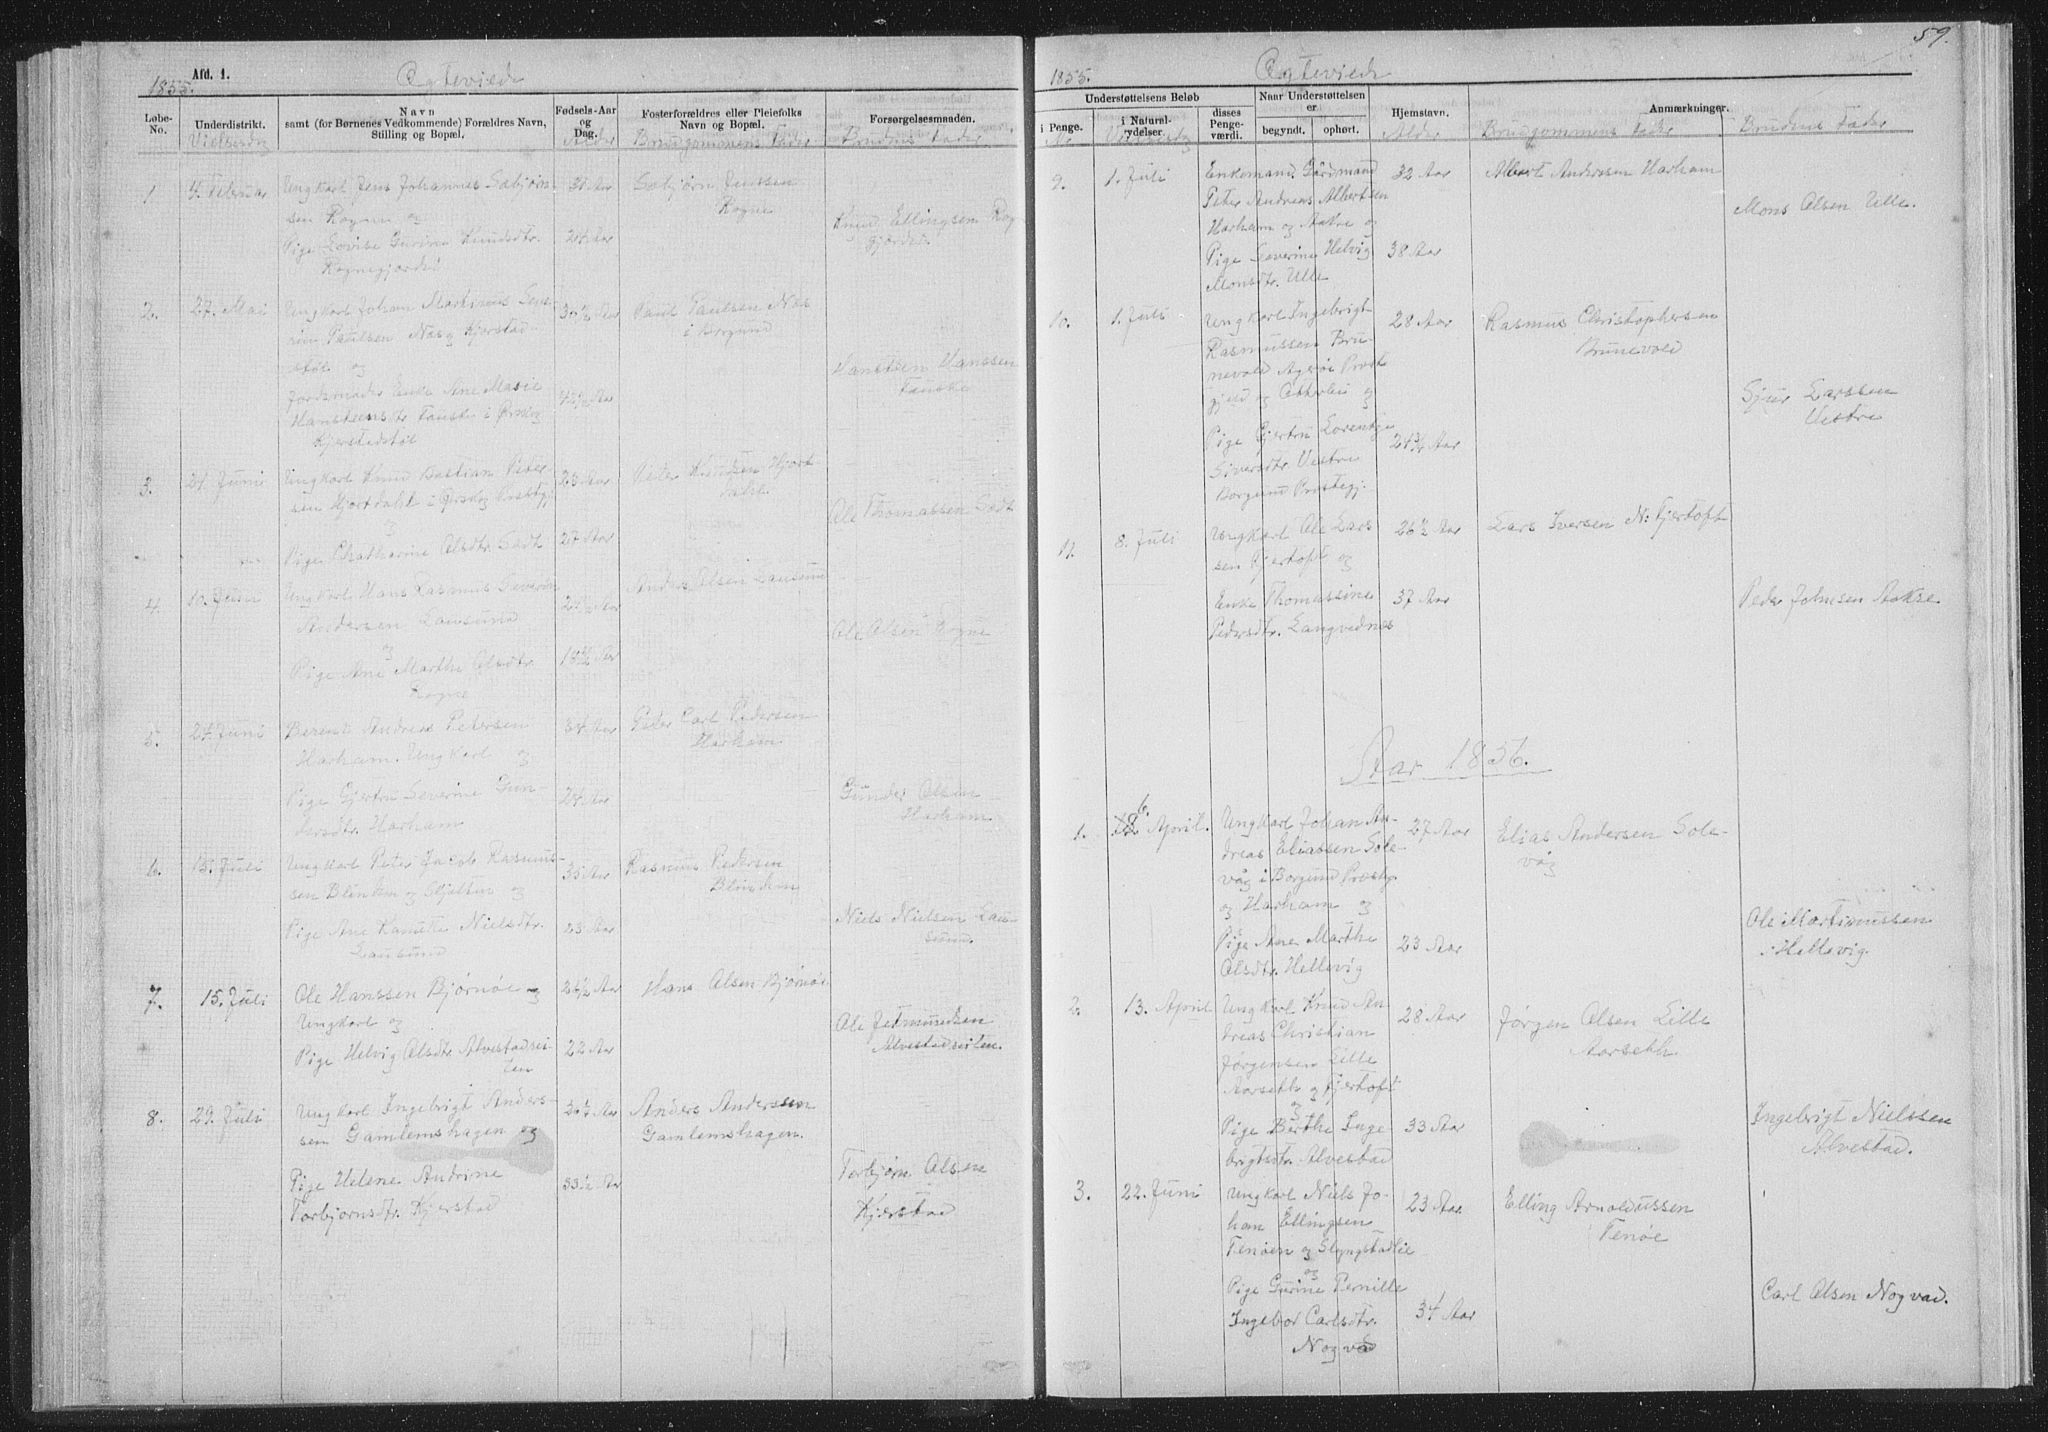 1855.
Afd. 1.
Egteviede
Løbe-No.
Underdistrikt.
Vielsesdag
Navn
samt (for Børnenes Vedkommende) Forældres Navn,
Stilling og Bopæl.
Fødsels-Aar
og
Dag.
Alder
Fosterforældres eller Pleiefolks
Navn og Bopæl.
Brudgommens Fader
Forsørgelsesmaaden.
Brudens Fader
1
4. Februar
Ungkarl Jens Johannes Sæbjørn-
sen Rogne og
Pige Lovise Gurine Knudsdtr.
Rognegjerdet
Aar
Aar
Sæbjørn Jenssen
Rogne
Knud Ellingsen Rog-
gjerdet
2.
27. Mai
Ungkarl Johan Martinus Seve-
rin Paulsen Næs og Kjerstad-
støl og
Jordemoder Enke Ane Marie
Hansteensdtr. Tauske i Ørskog
Kjerstadstøl
Aar
Aar
Paul Paulsen Næs
i Borgund
Hansteen Hanssen
Tauske
3.
24. Juni
Ungkarl Knud Bastian Peter-
sen Hjortdahl i Ørskog Prstegj.
og
Pige Chatharine Olsdtr. Sædt
Aar
27 Aar
Peter Knudsen Hjort-
dahl
Ole Thomassen Sædt
4.
10. Juni
Ungkarl Hans Rasmus Severin
Andersen Lausund
og
Pige Ane Marthe Olsdtr.
Rogne
Aar
Aar
Anders Olsen Lausund
Ole Olsen Rogne
5.
24. Juni
Berent Andreas Petersen
Harham. Ungkarl og
Pige Gjertru Severine Gun-
dersdtr. Harham
34 Aar
24 Aar
Peter Carl Pedersen
Harham
Gunder Olsen
Harham.
6.
15. Juli
Ungkarl Peter Jacob Rasmus-
sen Blindem og Skjelten og
Pige Ane Kanutte Nielsdtr.
Lausund
35 Aar
23 Aar
Rasmus Pedersen
Blindem
Niels Nielsen Lau-
sund.
7.
15. Juli
Ole Hanssen Bjørnøe og
Ungkarl og
Pige Helvig Olsdtr. Alvestadsei-
ten
24½ Aar
22 Aar
Hans Olsen Bjørnøe
Ole Jetmundsen
Alvestadseiten.
8.
29. Juli
Ungkarl Ingebrigt Anders-
sen Gamlemshagen og
Pige Helene Andrine
Torbjørnsdtr. Kjerstad
Aar
33½ Aar
Anders Anderssen
Gamlemshagen.
Torbjørn Olsen
Kjerstad
59.
1855.
Egteviede
Understøttelsens Beløb
i Penge.
i Natural-
rydelser.
disses
Penge-
værdi.
Naar Understøttelsen
er
begyndt.
ophørt.
Hjemstavn.
Anmærkninger.
Nr
Vielsesdag
Alder
Brudgommens Fader
Brudens Fader
9.
1. Juli
Enkemand Gårdmand
Peter Andreas Albertsen
Harham og Aakre og
Pige Severine Helvig
Monsdtr. Ulle
32 Aar
38 Aar
Albert Anderssen Harham
Mons Olsen Ulle.
10.
1. Juli
Ungkarl Ingebrigt
Rasmussen Bru-
nevold Agerøe Prost
gjeld og Otterlei og
Pige Gjertru Lorentze
Siversdtr. Vestre
Borgund Prostegj.
28 Aar
24¾ Aar
Rasmus Christophersen
Brunevold
Sjur Larssen
Vestre
11.
8. Juli
Ungkarl Ole Lars
sen Fjertoft og
Enke Thomassine
Pedersdtr. Langvednes
26½ Aar
37 Aar
Lars Iversen N: Fjertoft
Peder Johnsen Aakre
Aar 1856.
1.
6 April.
Ungkarl Johan An-
dreas Eliassen Sole-
våg i Borgund Prostg.
og Harham og
Pige Ane Marthe
Olsdtr. Hellevig
27 Aar
23 Aar
Elias Andersen Sole-
våg
Ole Martinussen
Hellevig.
2.
13. April
Ungkarl Knud An
dreas Christian
Jørgensen Lille
Aarseth og Fjertoft
og
Pige Berthe Inge
brigtsdtr. Alvestad
28 Aar
33 Aar
Jørgen Olsen Lille
Aarseth
Ingebrigt Nielssen
Alvestad.
3.
22. Juni
Ungkarl Niels Jo-
han Ellingsen
Tenøen og Slyngstadlie
og
Pige Gurine Pernille
Ingebor Carlsdtr.
Nogvad
23 Aar
34 Aar
Elling Arnoldussen
Tenøe
Carl Olsen Nogvad.